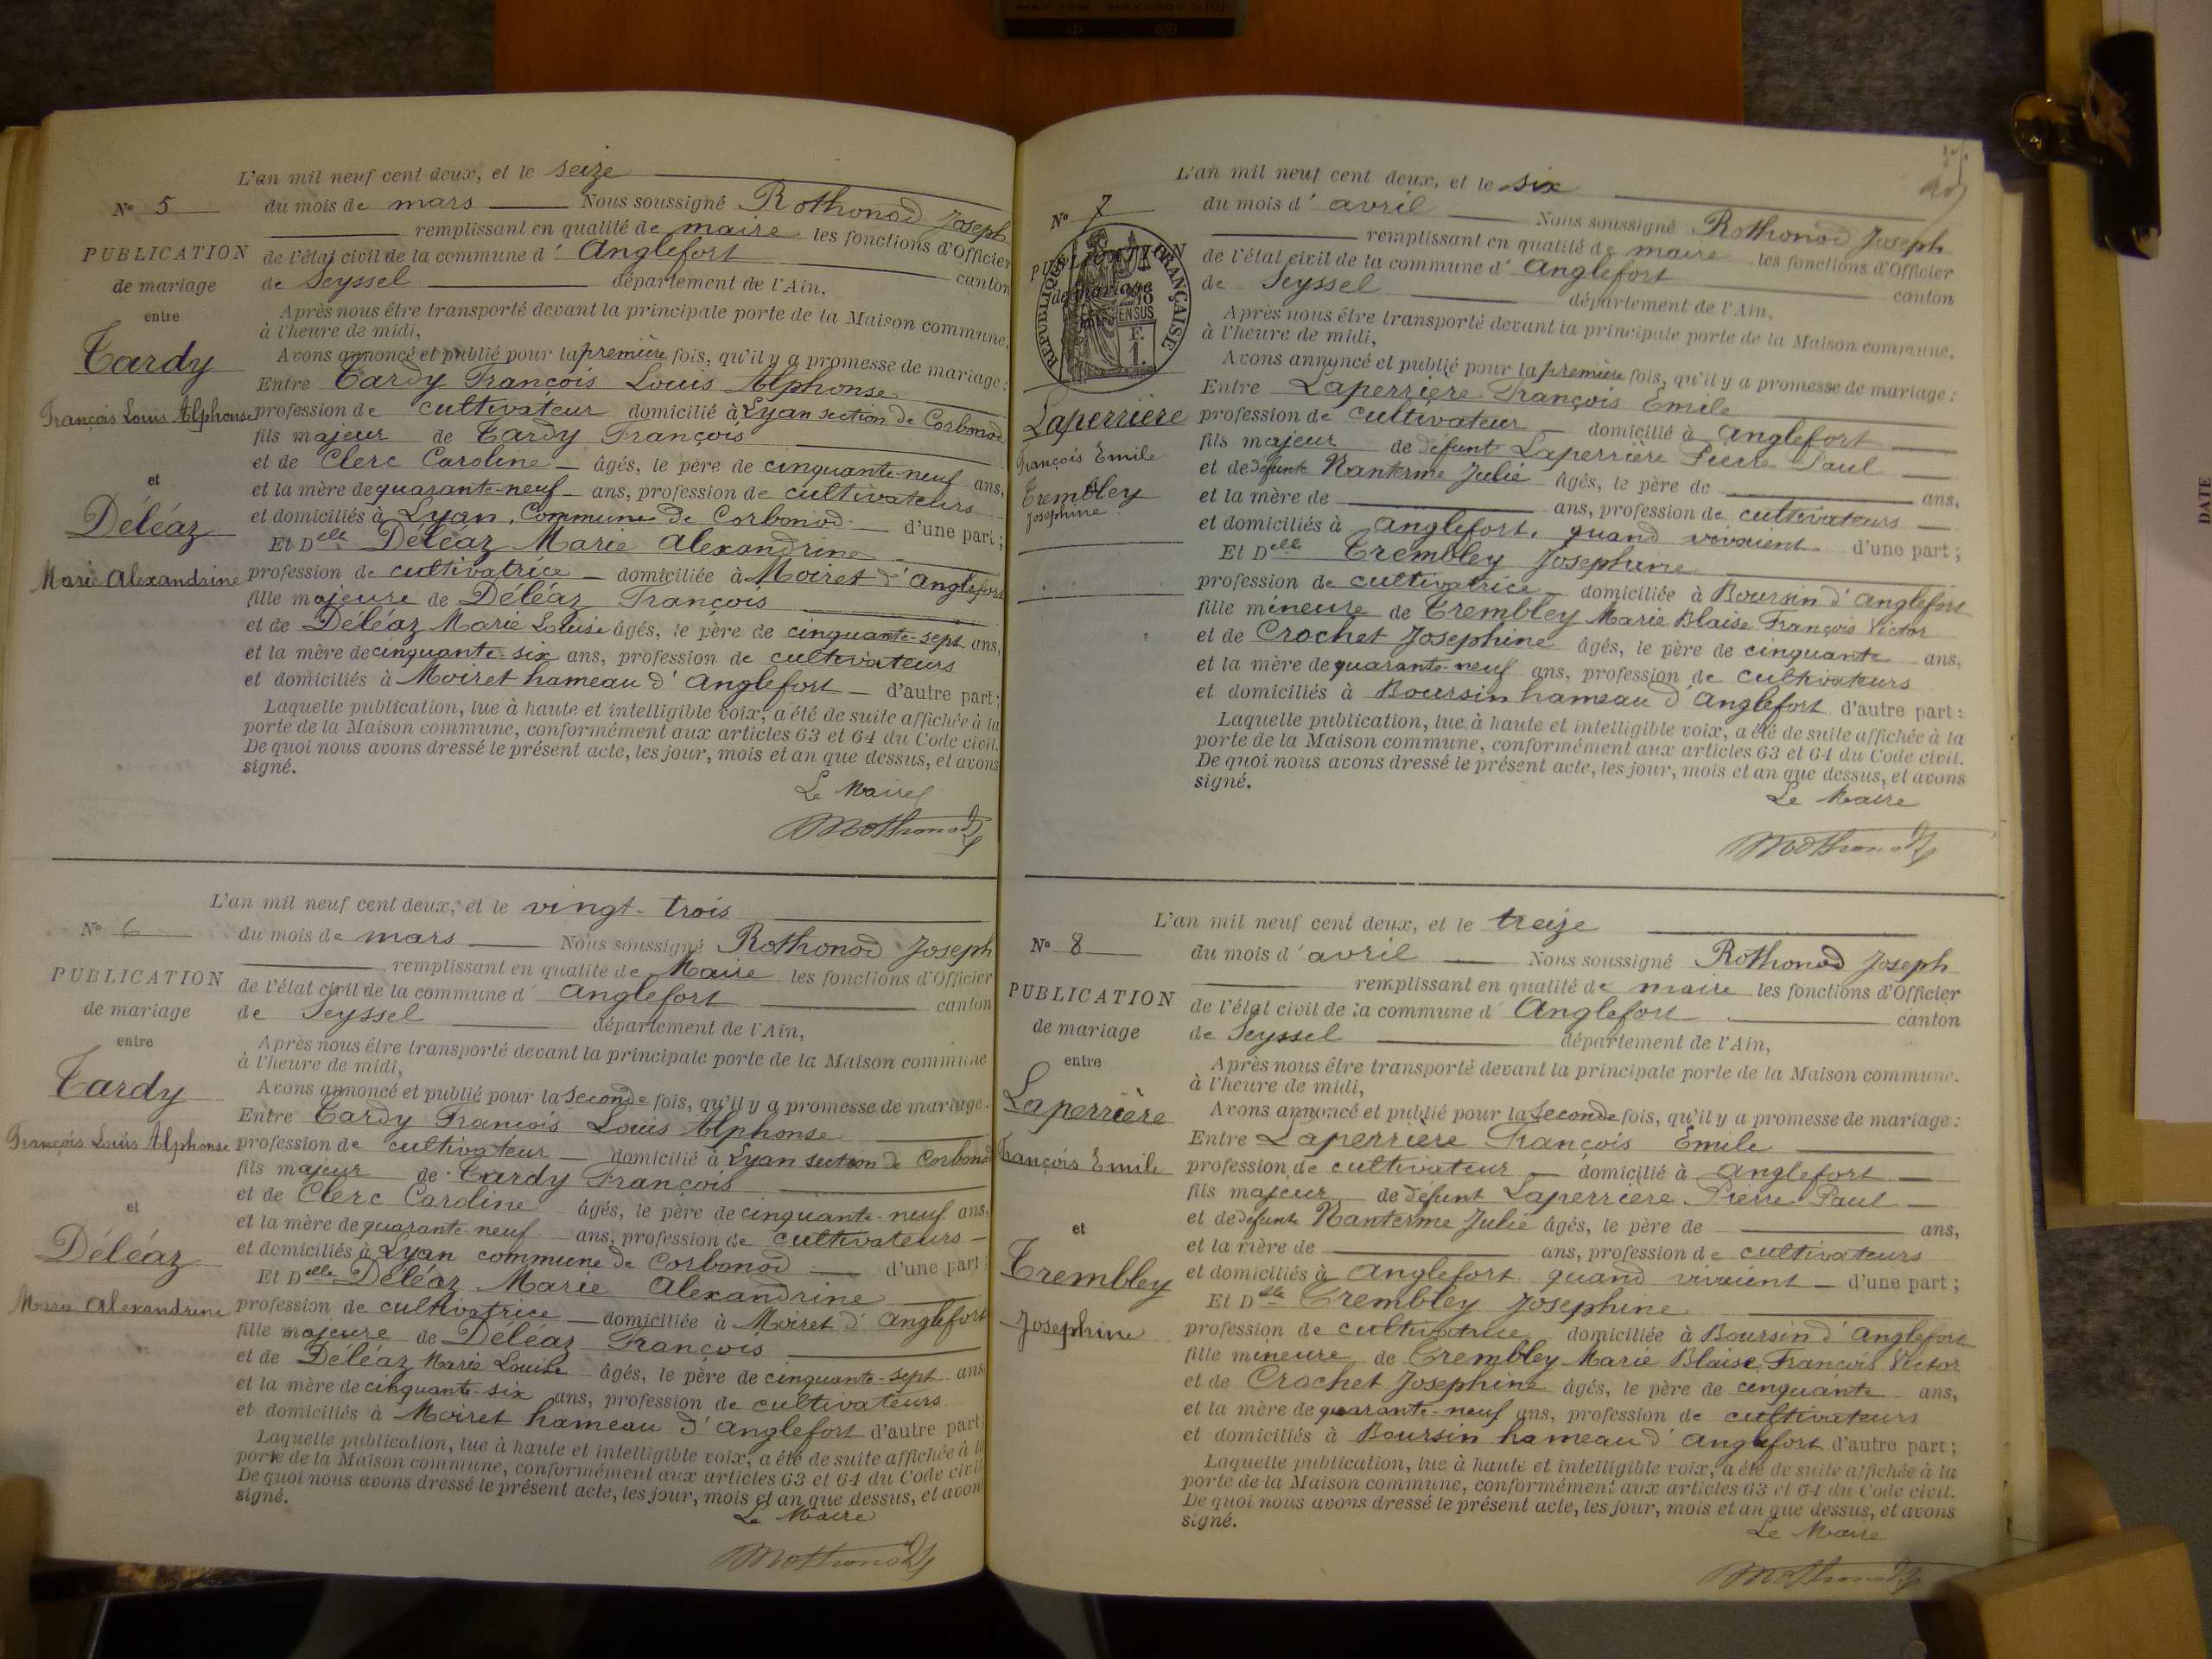 L'an mil neuf cent deux, et le seize
N° 5
du mois de mars Nous soussigné Rothonod Joseph
remplissant en qualité de maire les fonctions d'Officier
PUBLICATION
de l'état civil de la commune d' Anglefort canton
de mariage
de Seyssel département de l'Ain,
entre
Après nous être transporté devant la principale porte de la Maison commune,
à l'heure de midi,
Tardy
Avons annoncé et publié pour la première fois, qu'il y a promesse de mariage :
Entre Tardy François Louis Alphonse
François Louis Alphonse
profession de cultivateur domicilié à Lyan section de Corbonod
fils majeur de Tardy François
et de Clerc Caroline âgés, le père de cinquante-neuf ans,
et
et la mère de quarante-neuf ans, profession de cultivateurs
et domiciliés à Lyan, Commune de Corbonod d'une part ;
Déléaz
Et Delle Déléaz Marie Alexandrine
Marie Alexandrine
profession de cultivatrice domiciliée à Moiret d'Anglefort
fille majeure de Déléaz François
et de Déléaz Marie Louise âgés, le père de cinquante-sept ans,
et la mère de cinquante-six ans, profession de cultivateurs
et domiciliés à Moiret hameau d'Anglefort d'autre part ;
Laquelle publication, lue à haute et intelligible voix, a été de suite affichée à la
porte de la Maison commune, conformément aux articles 63 et 64 du Code civil.
De quoi nous avons dressé le présent acte, les jour, mois et an que dessus, et avons
signé.
Le Maire
Rothonod
L'an mil neuf cent deux, et le vingt-trois
N° 6
du mois de mars Nous soussigné Rothonod Joseph
remplissant en qualité de Maire les fonctions d'Officier
PUBLICATION
de l'état civil de la commune d' Anglefort canton
de mariage
de Seyssel département de l'Ain,
entre
Après nous être transporté devant la principale porte de la Maison commune
à l'heure de midi,
Tardy
Avons annoncé et publié pour la seconde fois, qu'il y a promesse de mariage.
Entre Tardy François Louis Alphonse
François Louis Alphonse
profession de cultivateur domicilié à Lyan section de Corbonod
fils majeur de Tardy François
et de Clerc Caroline âgés, le père de cinquante-neuf ans,
et
et la mère de quarante-neuf ans, profession de cultivateurs
et domiciliés à Lyan commune de Corbonod d'une part ;
Déléaz
Et Delle Déléaz Marie Alexandrine
Marie Alexandrine
profession de cultivatrice domiciliée à Moiret d'Anglefort
fille majeure de Déléaz François
et de Déléaz Marie Louise âgés, le père de cinquante-sept ans
et la mère de cinquante-six ans, profession de cultivateurs
et domiciliés à Moiret hameau d'Anglefort d'autre part
Laquelle publication, lue à haute et intelligible voix, a été de suite affichée à la
porte de la Maison commune, conformément aux articles 63 et 64 du Code civil
De quoi nous avons dressé le présent acte, les jour, mois et an que dessus, et avons
signé.
Le Maire
Rothonod
L'an mil neuf cent deux, et le six
N° 7
du mois d' avril Nous soussigné Rothonod Joseph
remplissant en qualité de maire les fonctions d'Officier
PUBLICATION
RÉPUBLIQUE FRANÇAISE
de l'état civil de la commune d' Anglefort canton
de mariage
2/10 EN SUS
F. 1.
de Seyssel département de l'Ain,
entre
Après nous être transporté devant la principale porte de la Maison commune,
à l'heure de midi,
Avons annoncé et publié pour la première fois, qu'il y a promesse de mariage :
Entre Laperrière François Emile
Laperrière
profession de cultivateur domicilié à Anglefort
François Emile
fils majeur de défunt Laperrière Pierre Paul
et de défunte Nanterme Julie âgés, le père de ans,
Trembley
et la mère de ans, profession de cultivateurs
Josephine
et domiciliés à Anglefort, quand vivaient d'une part ;
Et Delle Trembley Josephine
profession de cultivatrice domiciliée à Boursin d'Anglefort
fille mineure de Trembley Marie Blaise François Victor
et de Crochet Josephine âgés, le père de cinquante ans,
et la mère de quarante-neuf ans, profession de cultivateurs
et domiciliés à Boursin hameau d'Anglefort d'autre part :
Laquelle publication, lue à haute et intelligible voix, a été de suite affichée à la
porte de la Maison commune, conformément aux articles 63 et 64 du Code civil.
De quoi nous avons dressé le présent acte, les jour, mois et an que dessus, et avons
signé.
Le Maire
Rothonod
L'an mil neuf cent deux, et le treize
N° 8
du mois d' avril Nous soussigné Rothonod Joseph
remplissant en qualité de maire les fonctions d'Officier
PUBLICATION
de l'état civil de la commune d' Anglefort canton
de mariage
de Seyssel département de l'Ain,
entre
Après nous être transporté devant la principale porte de la Maison commune.
à l'heure de midi,
Laperrière
Avons annoncé et publié pour la seconde fois, qu'il y a promesse de mariage :
Entre Laperrière François Emile
François Emile
profession de cultivateur domicilié à Anglefort
fils majeur de défunt Laperrière Pierre Paul
et de défunte Nanterme Julie âgés, le père de ans,
et
et la mère de ans, profession de cultivateurs
Trembley
et domiciliés à Anglefort quand vivaient d'une part ;
Et Delle Trembley Josephine
Josephine
profession de cultivatrice domiciliée à Boursin d'Anglefort
fille mineure de Trembley Marie Blaise François Victor
et de Crochet Josephine âgés, le père de cinquante ans,
et la mère de quarante-neuf ans, profession de cultivateurs
et domiciliés à Boursin hameau d'Anglefort d'autre part ;
Laquelle publication, lue à haute et intelligible voix, a été de suite affichée à la
porte de la Maison commune, conformément aux articles 63 et 64 du Code civil.
De quoi nous avons dressé le présent acte, les jour, mois et an que dessus, et avons
signé.
Le Maire
Rothonod
DATE